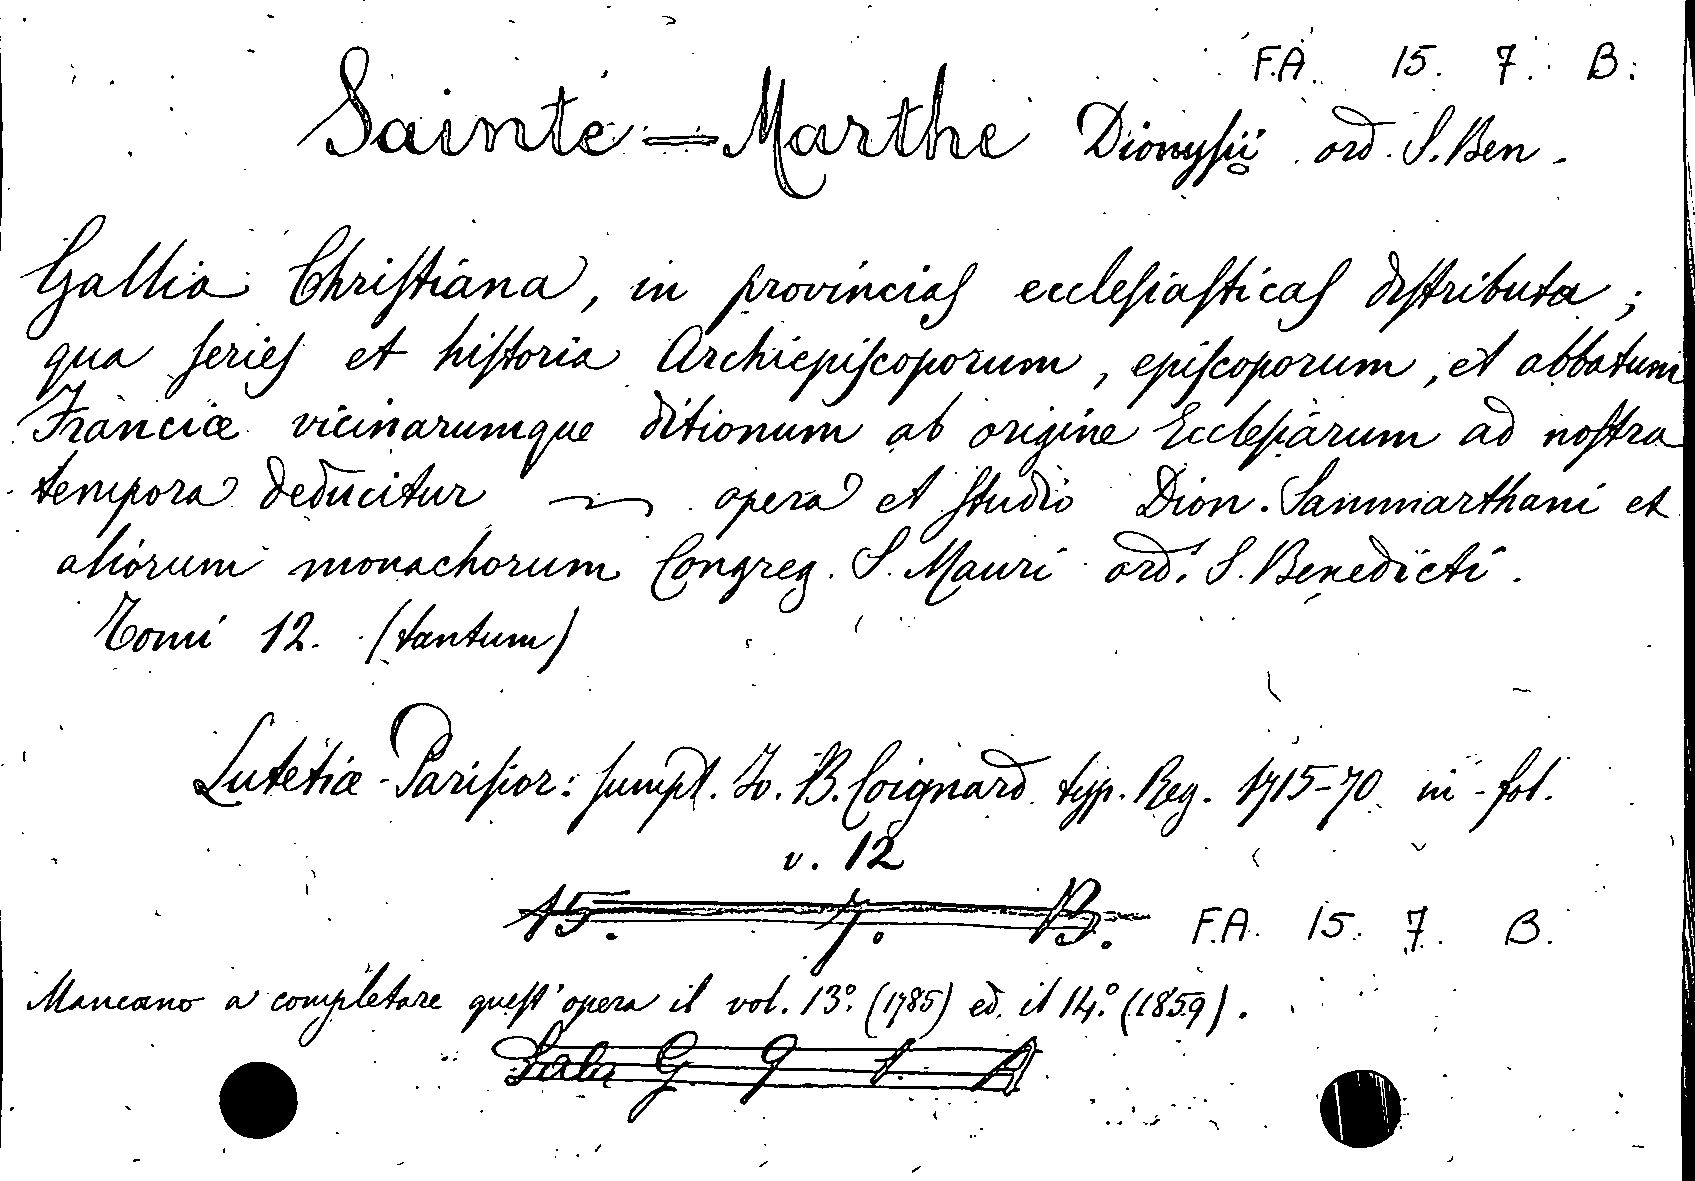 F.A. 15. 7. B.
Sainte=Marthe Dionysii ord. S. Ben.
Gallia Chriſtiana, in provinciaſ eccleſiaſticaſ diſtributa;
qua ſerieſ et hiſtoria Archiepiſcoporum, epiſcoporum, et abbatum
Franciæ vicinarumque ditionum ab origine Eccleſiarum ad noſtra
tempora deducitur ~ opera et ſtudio Dion. Sammarthani et
aliorum monachorum Congreg. S. Mauri ord. S. Benedicti.
Tomi 12. (tantum)
Lutetiæ-Pariſior: ſumpt. Jo. B. Coignard typ. Reg. 1715-70 in-fol.
v. 12
15. 7. B. F.A. 15. 7. B.
Mancano a completare queſt'opera il vol. 13º. (1785) ed il 14.º (1859).
Sala G 9 1. A